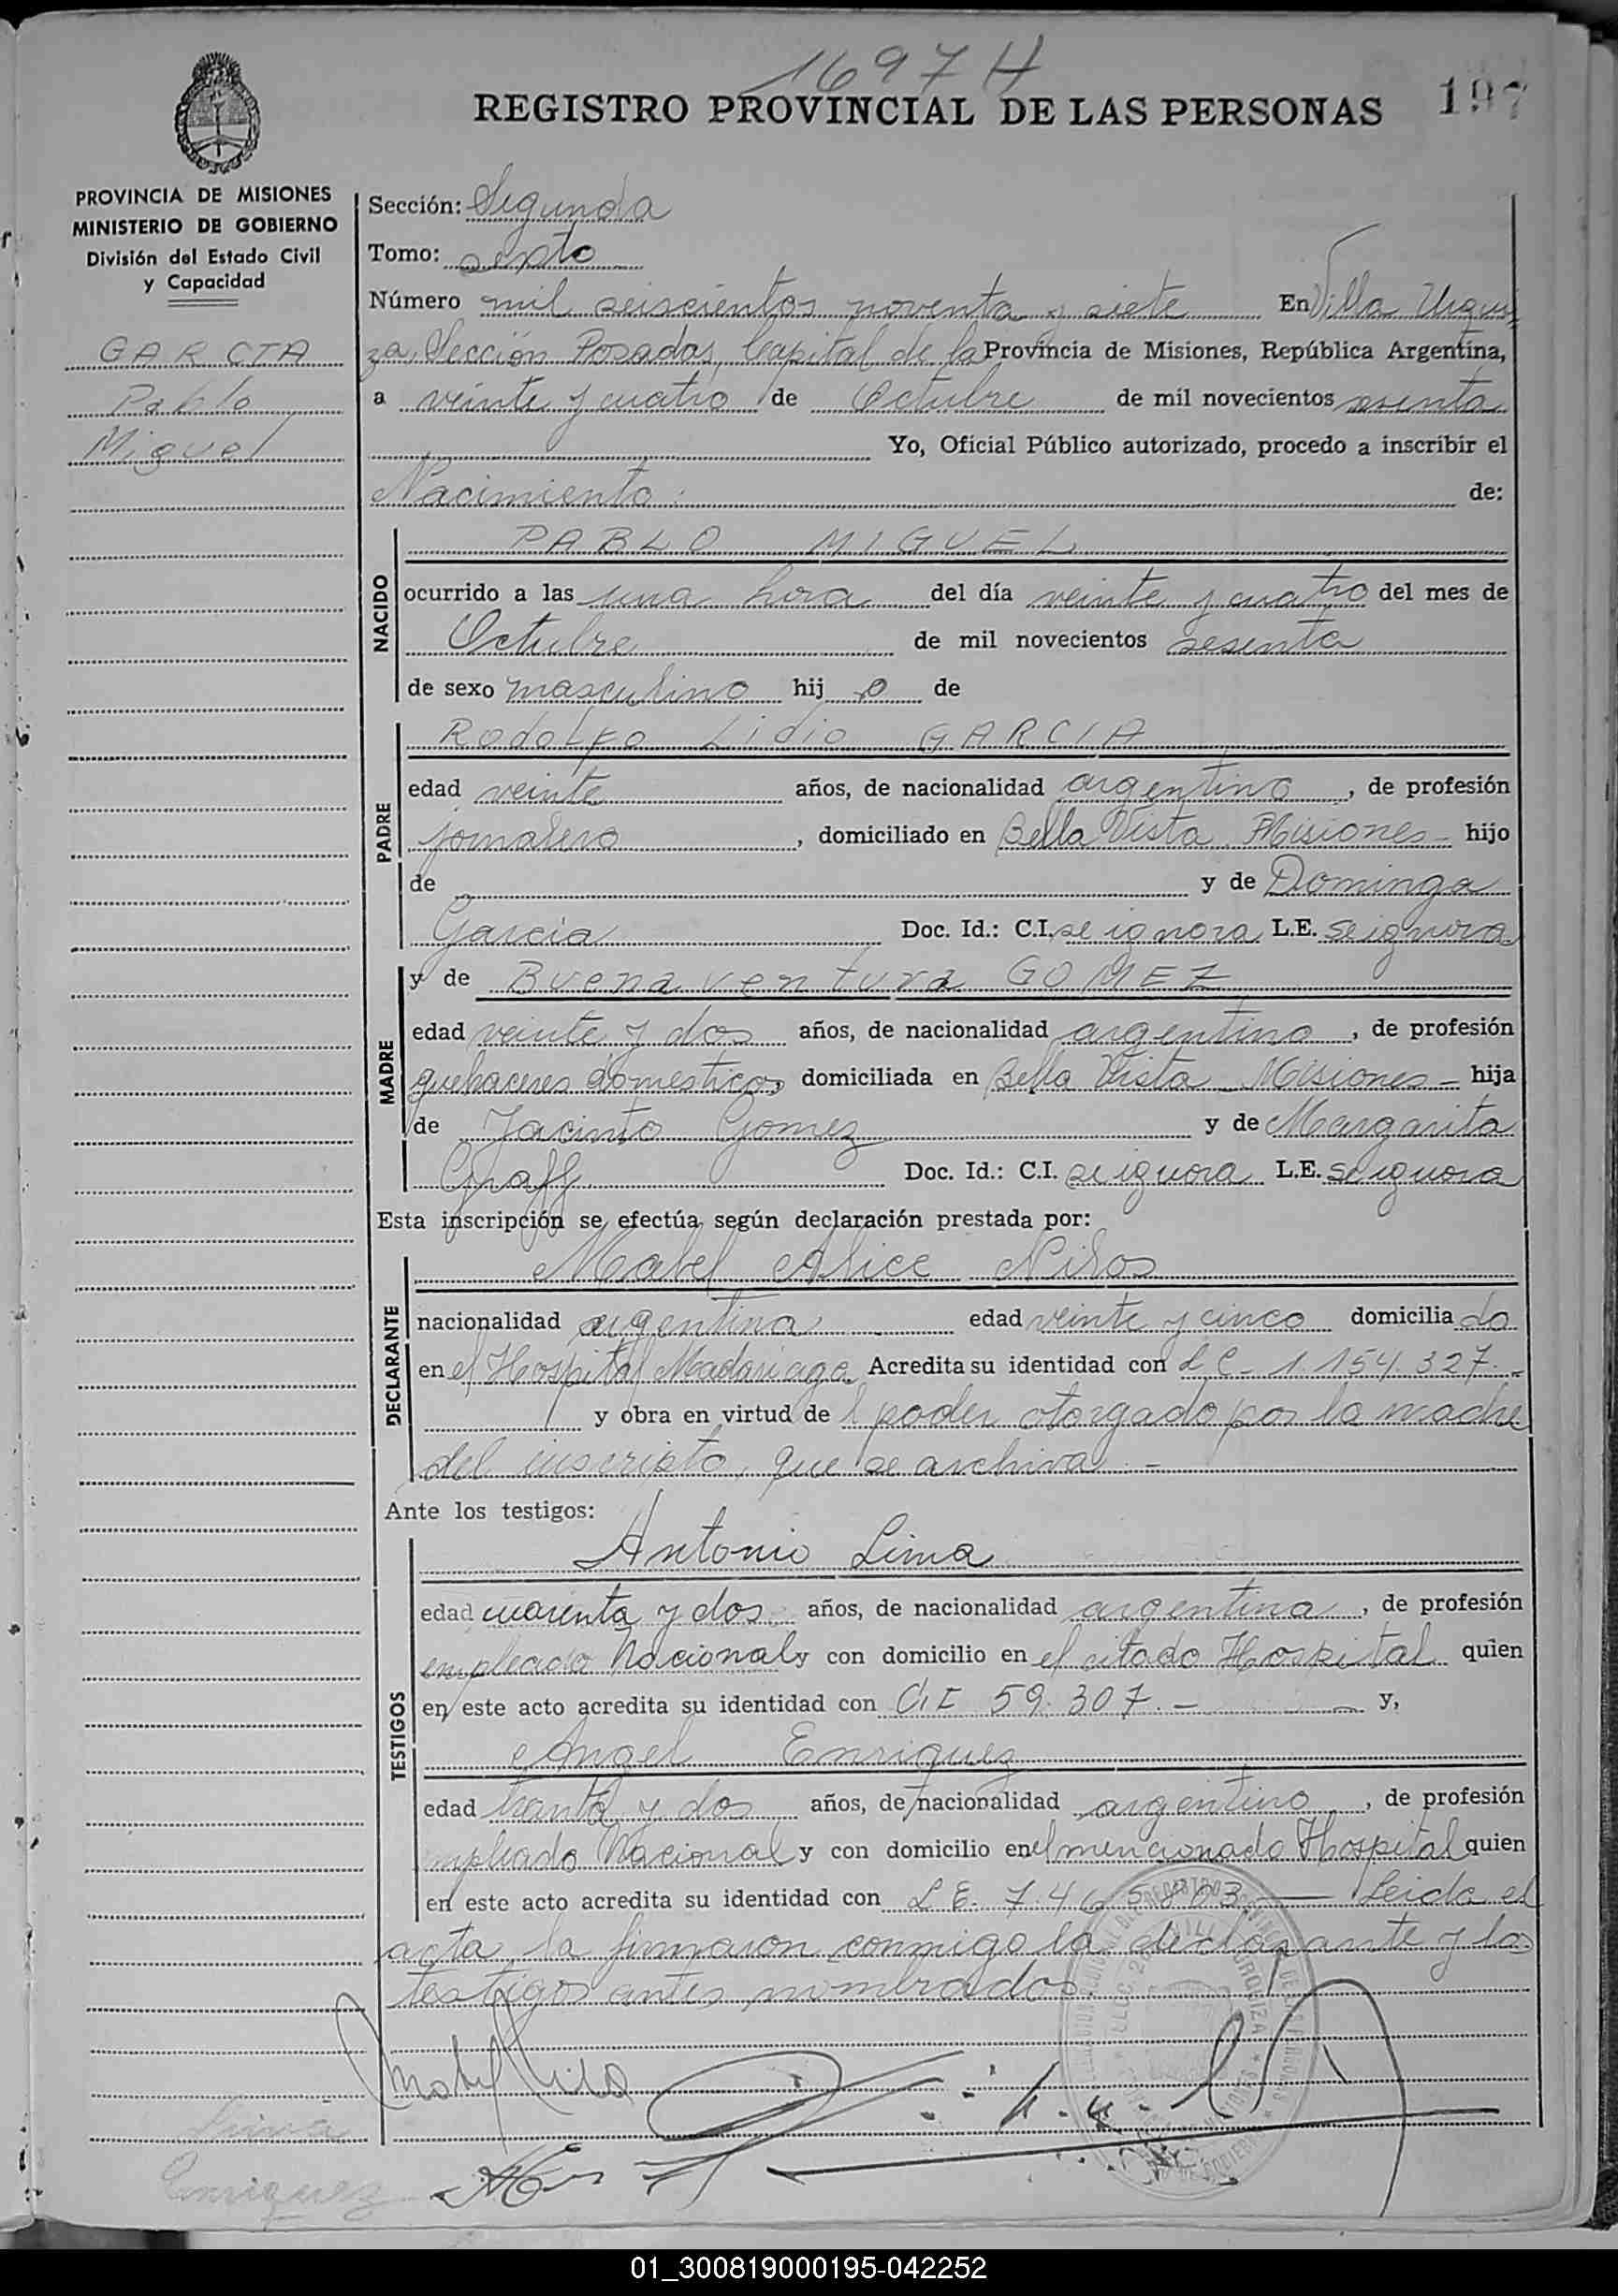 1697 H
REGISTRO PROVINCIAL DE LAS PERSONAS
197
PROVINCIA DE MISIONES
MINISTERIO DE GOBIERNO
División del Estado Civil
y Capacidad
GARCIA
Pablo
Miguel
Sección: Segunda
Tomo: sexto
Número mil seiscientos noventa y siete En Villa Urqui
za, Sección Posadas, Capital de la Provincia de Misiones, República Argentina,
a veinte y cuatro de Octubre de mil novecientos sesenta
Yo, Oficial Público autorizado, procedo a inscribir el
Nacimiento de:
NACIDO
PABLO MIGUEL
ocurrido a las una hora del día veinte y cuatro del mes de
Octubre de mil novecientos sesenta
de sexo masculino hij o de
PADRE
Rodolfo Lidio GARCIA
edad veinte años, de nacionalidad argentino, de profesión
jornalero, domiciliado en Bella Vista Misiones - hijo
de y de Dominga
Garcia Doc. Id.: C.I. se ignora L.E. se ignora
MADRE
y de Buenaventura GOMEZ
edad veinte y dos años, de nacionalidad argentina, de profesión
quehaceres domesticos domiciliada en Bella Vista - Misiones - hija
de Jacinto Gomez y de Margarita
Graff Doc. Id.: C.I. se ignora L.E. se ignora
Esta inscripción se efectúa según declaración prestada por:
DECLARANTE
Mabel Alice Niros
nacionalidad argentina edad veinte y cinco domicilia da
en el Hospital Madariaga Acredita su identidad con L C - 1.154.327.-
y obra en virtud de l poder otorgado por la madre
del inscripto, que se archiva.-
Ante los testigos:
TESTIGOS
Antonio Lima
edad cuarenta y dos años, de nacionalidad argentina, de profesión
empleado Nacional y con domicilio en el citado Hospital quien
en este acto acredita su identidad con C.I 59.307.- y,
Angel Enriquez
edad treinta y dos años, de nacionalidad argentino, de profesión
empleado Nacional y con domicilio en el mencionado Hospital quien
en este acto acredita su identidad con L E. 7.465.803 — Leida el
acta la firmaron conmigo la declarante y los
testigos antes nombrados.
Lima
Enriquez
01_300819000195-042252